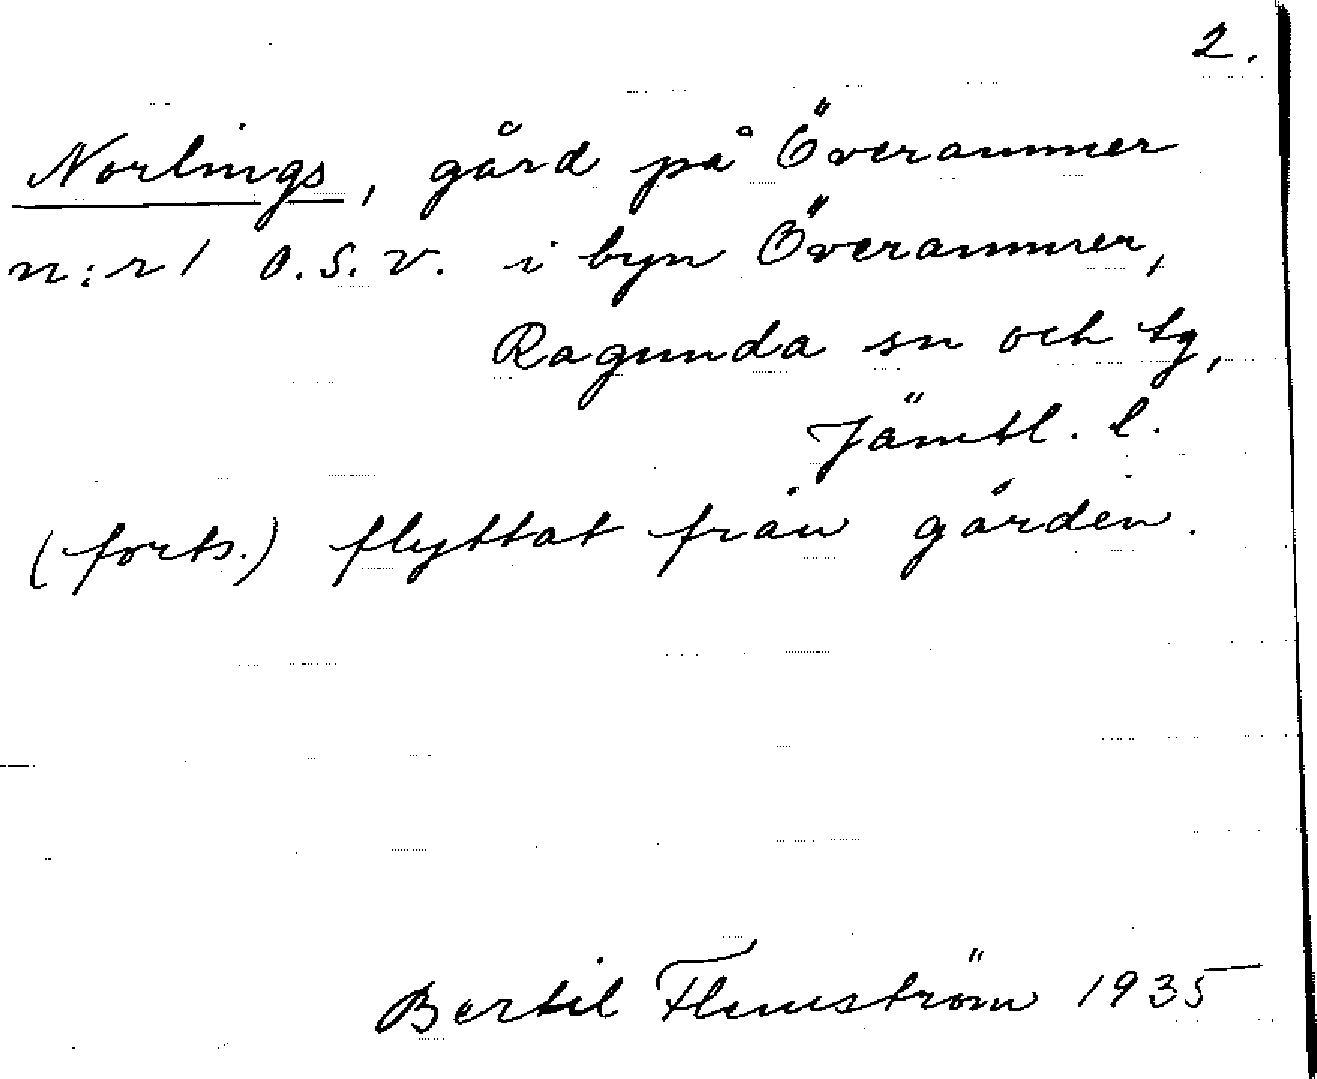 2.
Norlings, gård på Överammer
n:r 1 o.s.v. i byn Överammer,
Ragunda sn och tg,
Jämtl. l.
(forts.) flyttat från gården.
Bertil Flemström 1935